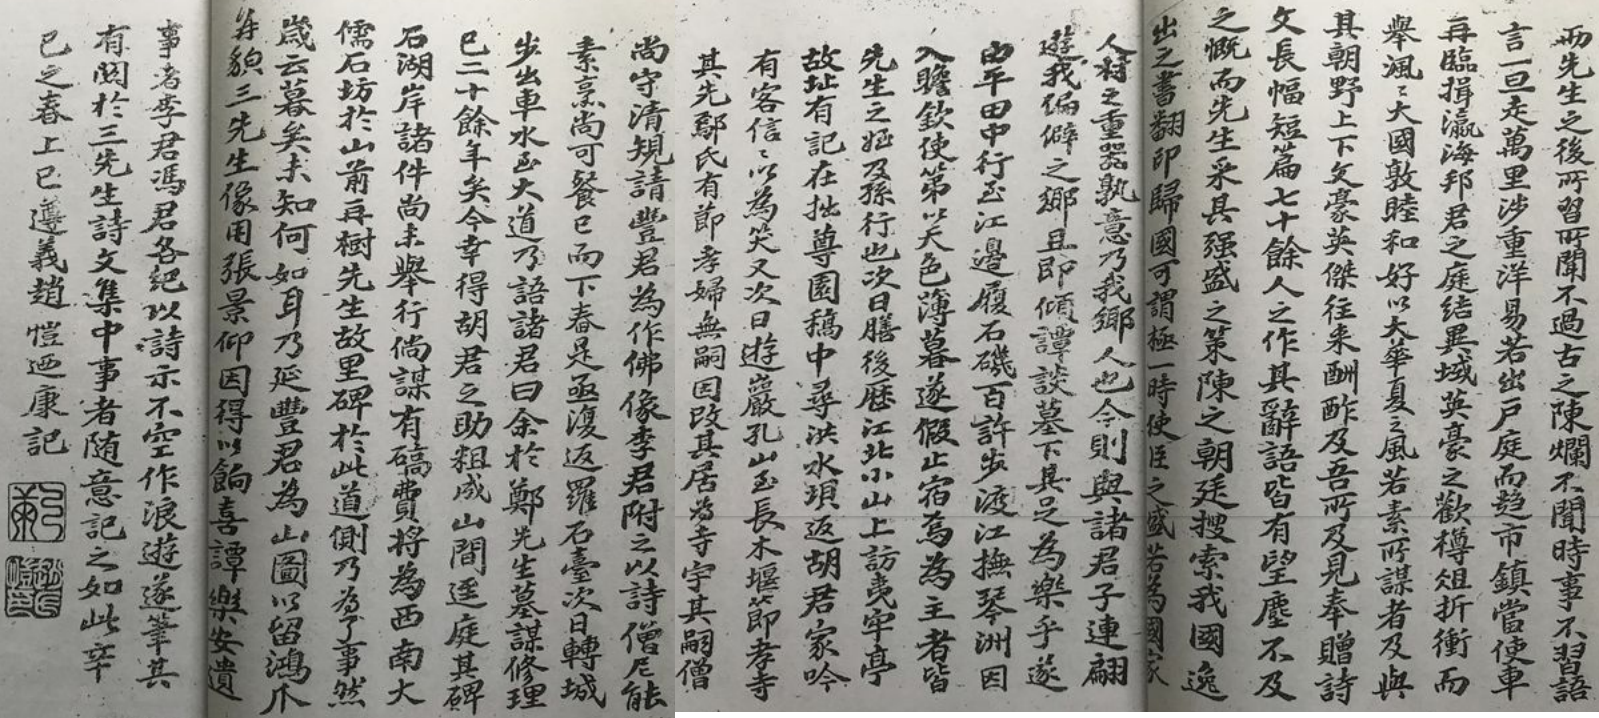 而先生之後所習所聞不過古之陳爛不聞時事不習語
言一旦走萬里涉重洋易若出戶庭而趋市鎮當使車
再臨揖瀛海邦君之庭結異域英豪之歡樽俎折衝而
舉渢渢大國敦睦和好以大華夏之風若素所謀者及與
其朝野上下文豪英傑往来酬酢及吾所及見奉贈詩
文長幅短篇七十餘人之作其辭語皆有望塵不及
之慨而先生采其强盛之策陳之朝廷搜索我國逸
出之書翻印歸國可謂極一時使臣之盛若為國家
人材之重器孰意乃我鄉人也今則與諸君子連翩
遊我偏僻之鄉且即傾譚談墓下其足為樂乎遂
由平田中行至江邊履石磯百許步渡江撫琴洲因
入瞻欽使第以天色薄暮遂假止宿焉為主者皆
先生之姪及孫行也次日膳後歷江北小山上訪夷牢亭
故址有記在拙尊園稿中尋洪水垻返胡君家吟
有客信信以為笑又次日遊巖孔山至長木堰節孝寺
其先鄢氏有節孝婦無嗣因改其居為寺宇其嗣僧
尚守清規請豐君為作佛像李君附之以詩僧尼能
素烹尚可餐已而下舂是亟復返羅石臺次日轉城
步出車水至大道乃語諸君曰余於鄭先生墓謀修理
已二十餘年矣今幸得胡君之助粗成山間逕庭其碑
石湖岸諸件尚未舉行倘謀有碻費将為西南大
儒石坊於山前再樹先生故里碑於此道側乃為了事然
歲云暮矣未知何如耳乃延豐君為山圖以留鴻爪
并貌三先生像用張景仰因得以餉喜譚樂安遺
事者李君馮君各紀以詩示不空作浪遊遂筆其
有関於三先生詩文集中事者随意記之如此辛
巳之春上巳遵義趙愷迺康記